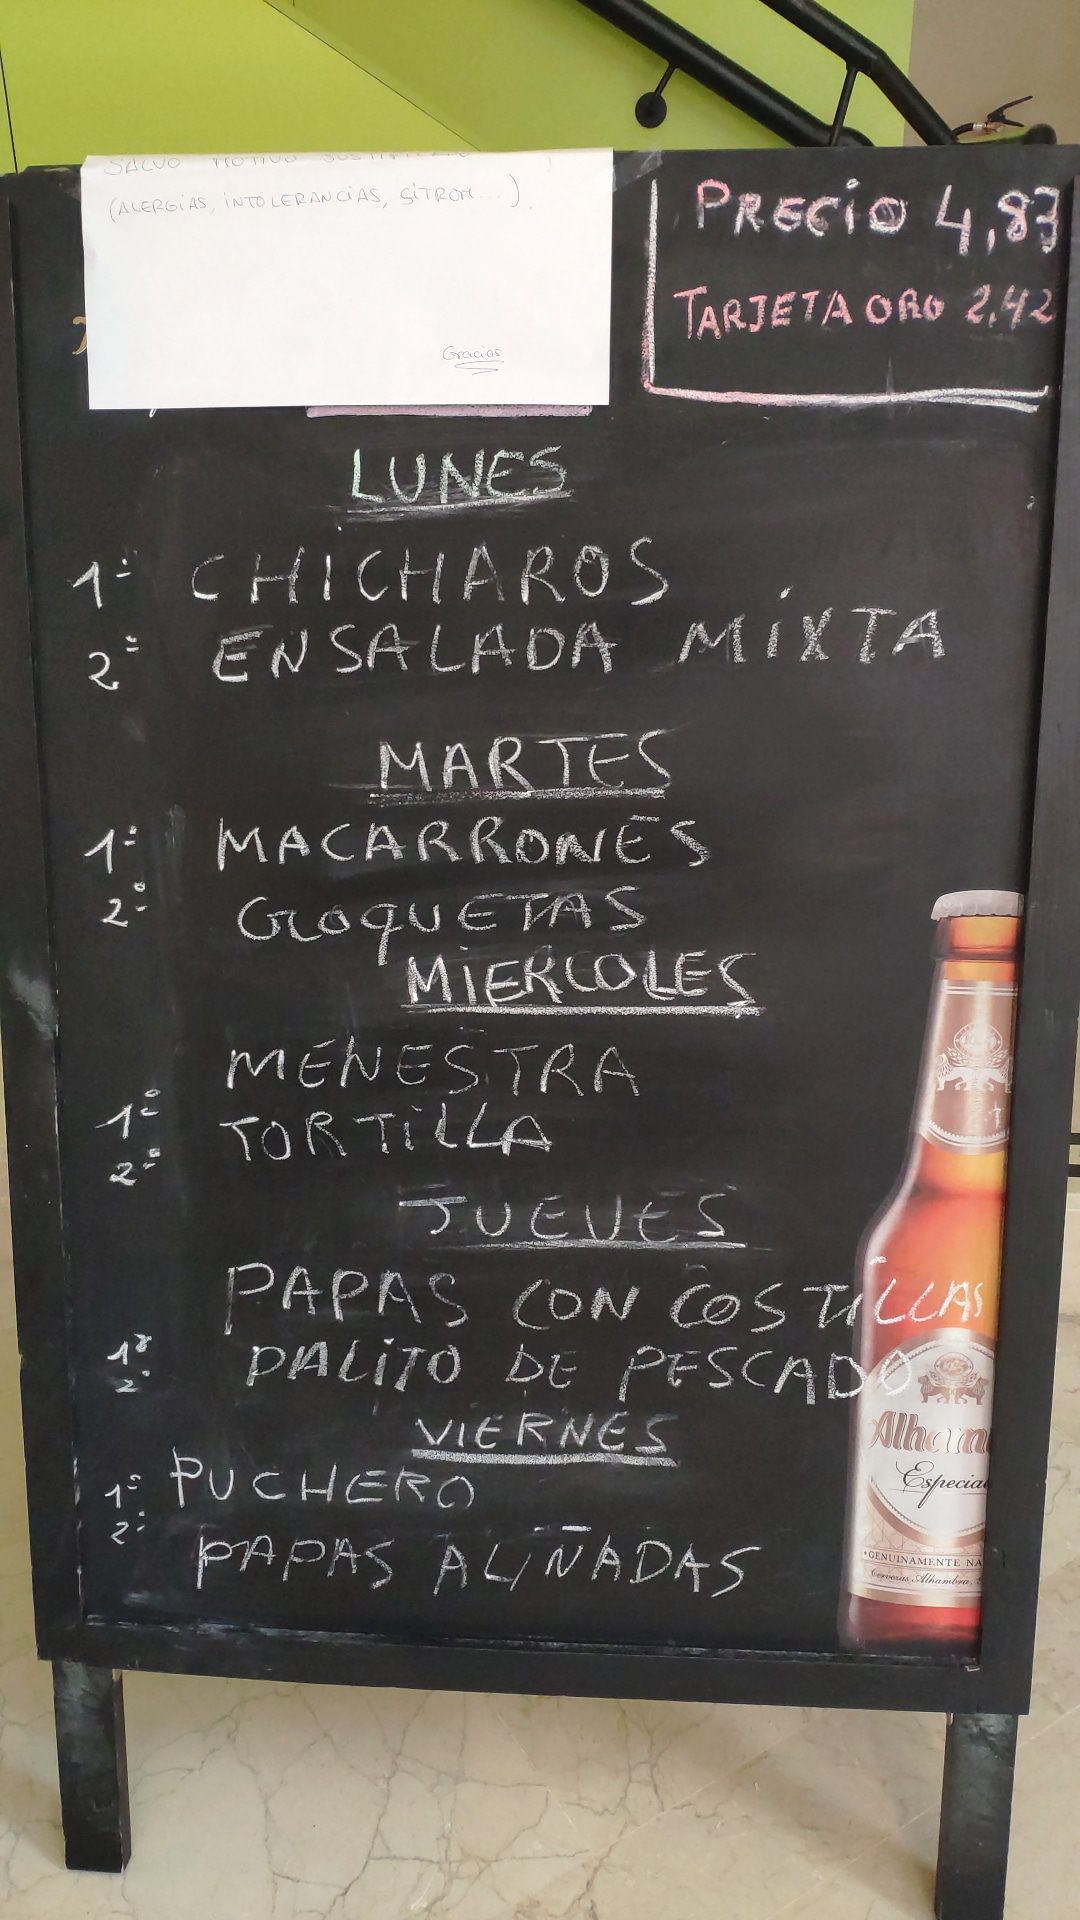 SALVO MOTIVO JUSTIFICADO
(ALERGIAS, INTOLERANCIAS, SITROM...).
Gracias
PRECIO 4,83
TARJETA ORO 2,42
LUNES
1º CHICHAROS
2º ENSALADA MIXTA
MARTES
1º MACARRONES
2º CROQUETAS
MIERCOLES
MENESTRA
1º
TORTILLA
2º
JUEVES
PAPAS CON COSTILLAS
1º
PALITO DE PESCADO
2º
VIERNES
1º PUCHERO
2º
PAPAS ALIÑADAS
Especial
GENUINAMENTE NA
Cervezas Alhambra, S